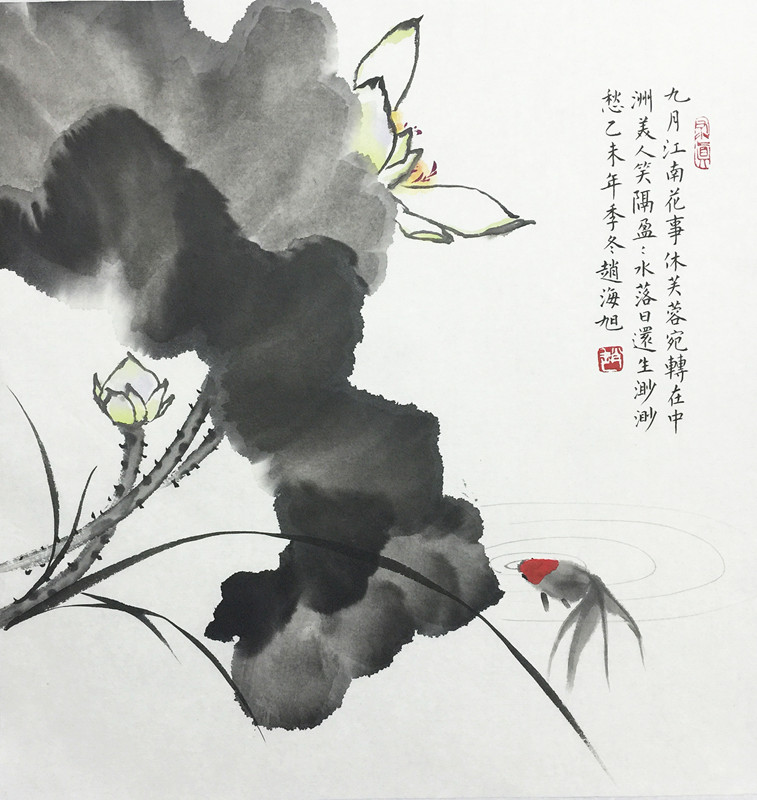 九月江南花事休芙蓉宛轉在中
洲美人笑隔盈〻水落日還生渺渺
愁乙未年季冬趙海旭